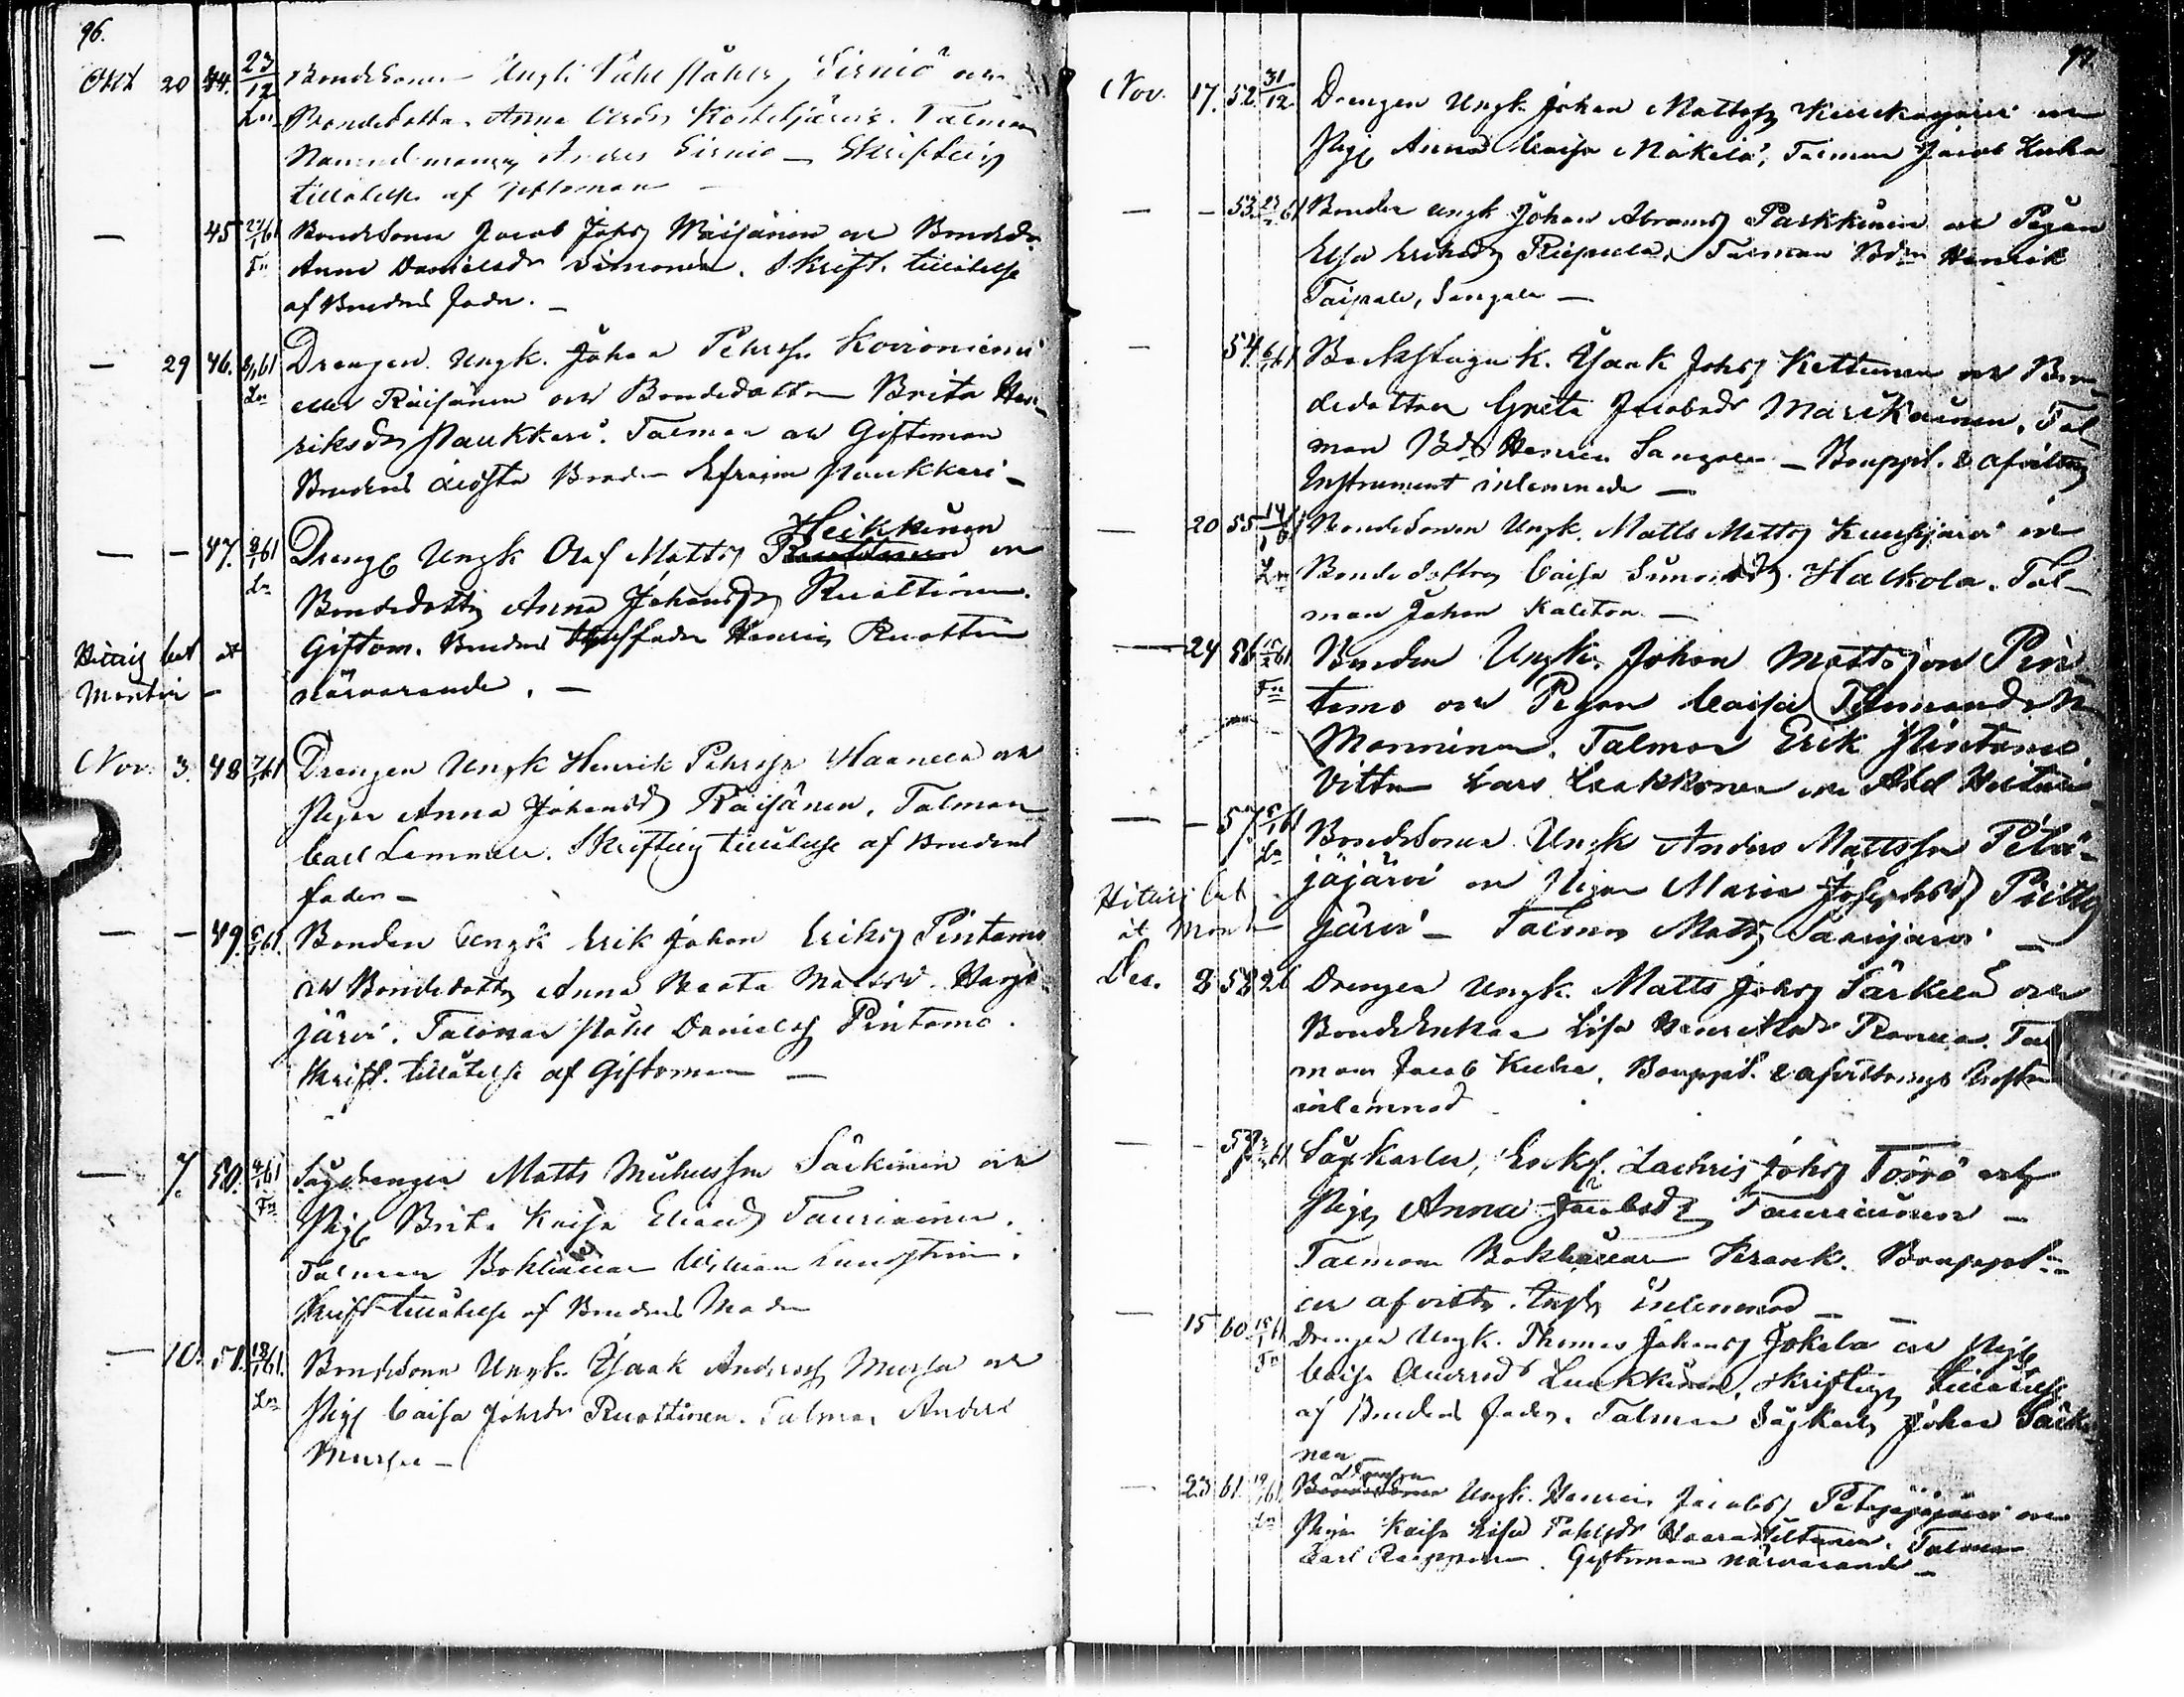 96.
Oct 20 44. 23/12 Bondesonen Ungk. Påhl Påhls, Sirniö och
Ln Bondedottr. Anna Kostetjärvi. Talman
Nämndemannen Anders Sirniö — Skriftlig
tillåtelse af giftoman —
— 45 27/1 61 Bondesonen Jacob Johss Wäisänen och Bondedr.
Fn Anna Danielsdr Simonen. Skrift. tillåtelse
af Brudens fader. —
— 29 46. 8/1 61 Drengen Ungk. Johan Pehrss. Koironiemi
Ln eller Räisänen och Bondedottren Brita Hen-
riksdr Paukkeri. Talman och Giftoman
Brudens äldsta Broder Efraim Paukkeri —
Heikkinen
— — 47. 8/1 61 Drengen Ungk Olof Mattss och
Ln Bondedottr Anna Johansdr Ruottinen.
Giftom. Brudens Henric Ruottinen
Hittils bet. åt
Montin — närvarande. —
Nov. 3. 48 7/1 61 Drengen Ungk Henrik Pehrsson Haanela och
Pigan Anna Johansdr Räisänen. Talman
Carl Lemmelä. Skriftlig tillåtelse af Brudens
fader —
— — 49. 6/1 61. Bonden Ungk Erik Johan Erikss Pintamo
och Bondedottr Anna Beata Matsd. Harju-
järvi. Talman Påhl Danielss Pintamo.
Skrift. tillåtelse af Giftoman —
— 7. 50. 4/1 61 Sågdrengen Matts Michelsson Särkinen och
Fn Pig. Brita Kaisa Eliaedr Tauriainen.
Talman Bokhållar William Lundström.
Skrift tillåtelse af Brudens Moder
— 10. 51. 13/1 61. Bondesonen Ungk. Isaak Anderss Mursu och
Ln Pig. Caisa Johsdr Ruottinen. Talman Anders
Mursu —
97
Nov. 17. 52. 31/12 Drengen Ungk. Johan Mattss Kuukasjärvi och
Pig. Anna Caisa Mäkelä, Talman Jacob Kuha
— — 53. 27/1 61 Bonden ungk Johan Abramss Parkkinen och Pigan
Elsa Eriksdr Riepula, Talman Bdn Henrik
Taipale, Sangala —
— 54. 6/1 61 Backstuguk. Isaak Johss Kettunen och Bon-
dedottren Greta Jacobsdr Marikainen. Tal-
man Bd. Henric Sangala — Bouppt. & afvittrs
Instrument inlemnade —
— 20 55 14/1 61 Bondesonen Ungk. Matts Mattss Kuusijärvi och
Ln Bondedottren Caisa Simonsdr Halkola. Tal-
man Johan Kallton —
— 24 56 15/2 61 Bonden Ungk. Johan Mattsson Pin-
Fn tamo och Pigan Caisa
Manninen. Talman Erik Pintamo
Vittn Lars Laakkonen och Abel
— — 57 6/1 61 Bondesonen Ungk Anders Mattsson Petä-
Ln jäjärvi och Pigan Maria Josephsdr
Hittils bet.
åt Mont järvi — Talman Matts Saarijärvi —
Dec. 8 58 2 Drengen Ungk. Matts Johss Särkelä och
Bondeenkan Lisa Henriksdr Ronua. Tal-
man Jacob Kuha. Bouppt. & afvittrings Instr.
inlemnad
— — 59 Sågkarlen, Enkl. Zachris Johss Törrö och
Pig. Anna Jacobsdr Tauriainen —
Talman Bokhållaren Krank. Bouppt.
och afvittr. Instr. inlemnad —
— 15 60 15/1 61 Drengen Ungk. Thomas Johanss Jokela och Pig.
Fn Caisa Andersdr Luukkinen, skriftlig tillåtelse
af Brudens fader. Talman Sågkarln Johan Särki-
nen
Drengen
— 23 61. 19/1 61 Bondesonen Ungk. Henric Jacobss Petäjäjärvi och
Ln Pigan Kaisa Lisa Påhlsdr Talman
Carl Giftoman närvarande —